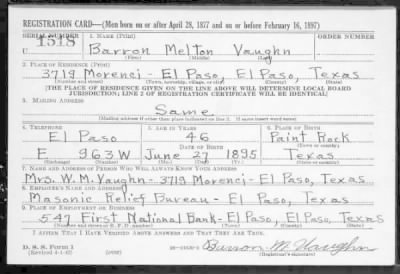 REGISTRATION CARD—(Men born on or after April 28, 1877 and on or before February 16, 1897)
SERIAL NUMBER 1. NAME (Print) ORDER NUMBER
U 1518 Barron Melton Vaughn
(First) (Middle) (Last)
2. PLACE OF RESIDENCE (Print)
3719 Morenci - El Paso, El Paso, Texas
(Number and street) (Town, township, village, or city) (County) (State)
[THE PLACE OF RESIDENCE GIVEN ON THE LINE ABOVE WILL DETERMINE LOCAL BOARD
JURISDICTION; LINE 2 OF REGISTRATION CERTIFICATE WILL BE IDENTICAL]
3. MAILING ADDRESS
Same
[Mailing address if other than place indicated on line 2. If same insert word same]
4. TELEPHONE 5. AGE IN YEARS 6. PLACE OF BIRTH
El Paso 46 Paint Rock
DATE OF BIRTH (Town or county)
E 963W June 27 1895 Texas
(Exchange) (Number) (Mo.) (Day) (Yr.) (State or country)
7. NAME AND ADDRESS OF PERSON WHO WILL ALWAYS KNOW YOUR ADDRESS
Mrs. W. M. Vaughn - 3719 Morenci - El Paso, Texas
8. EMPLOYER'S NAME AND ADDRESS
Masonic Relief Bureau - El Paso, Texas
9. PLACE OF EMPLOYMENT OR BUSINESS
547 First National Bank - El Paso, El Paso, Texas
(Number and street or R. F. D. number) (Town) (County) (State)
I AFFIRM THAT I HAVE VERIFIED ABOVE ANSWERS AND THAT THEY ARE TRUE.
D. S. S. Form 1 Barron M. Vaughn
(Revised 4-1-42) (over) (Registrant's signature)